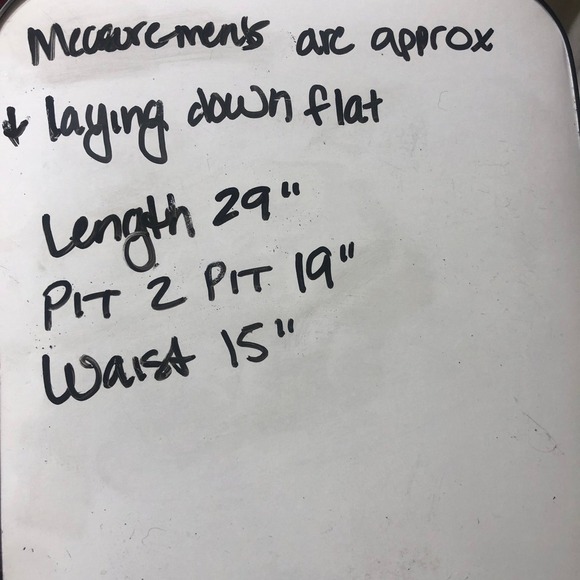 Measurements are approx
+ laying down flat
Length 29"
PIT 2 PIT 19"
Waist 15"